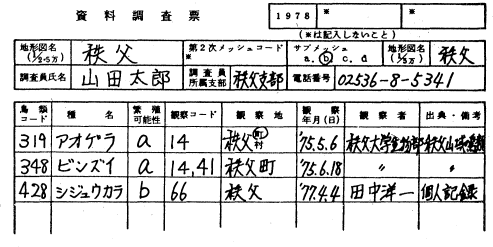 資料調査票 1978 ※ ※
(※は記入しないこと)
地形図名 (1/2.5万) 秩父 第2次メッシュコード ※ サブメッシュ a. ⓑ c. d 地形図名 (1/5万) 秩父
調査員氏名 山田太郎 調査員所属支部 秩父支部 電話番号 02536-8-5341
鳥類コード 種名 繁殖可能性 観察コード 観察地 観察年月(日) 観察者 出典・備考
319 アオゲラ a 14 秩父町村 '75.5.6 秩父大学生物部
348 ビンズイ a 14,41 秩父町 '75.6.18 〃 〃
428 シジュウカラ b 66 秩父 '77.4.4 田中洋一 個人記録